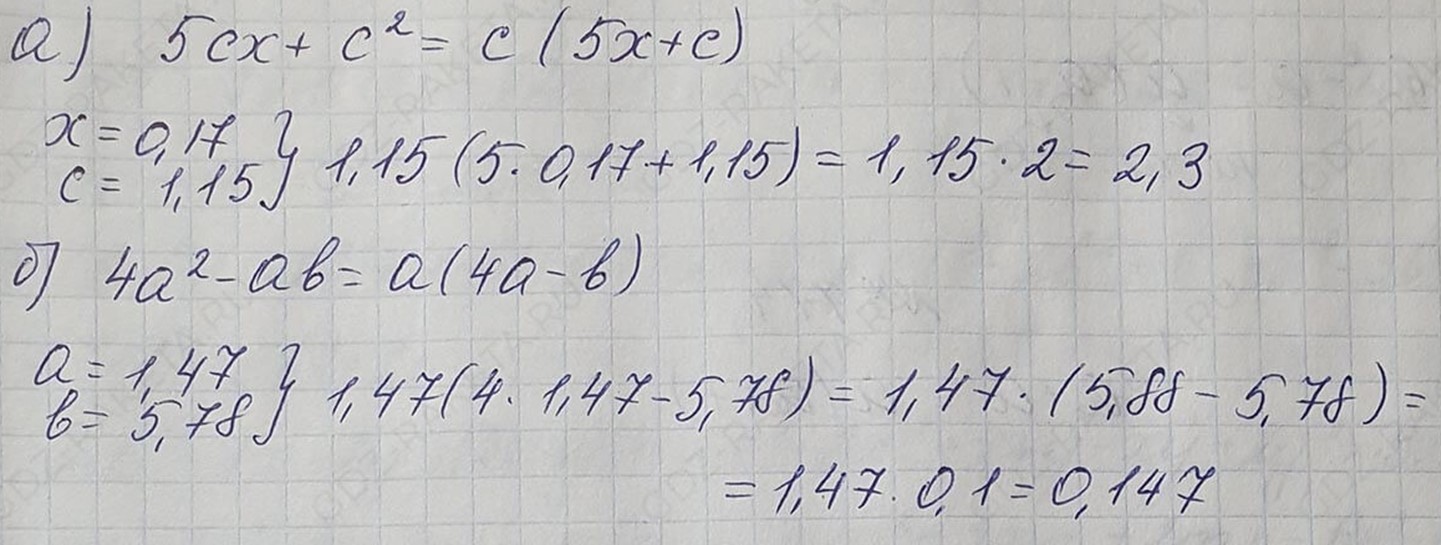 а) 5cx + c² = c (5x+c)
x = 0,17
c = 1,15 } 1,15 (5 · 0,17 + 1,15) = 1, 15 · 2 = 2, 3
б) 4a² - ab = a (4a - b)
a = 1,47
b = 5,78 } 1,47 (4 · 1,47 - 5,78) = 1,47 · (5,88 - 5,78) =
= 1,47 · 0,1 = 0,147